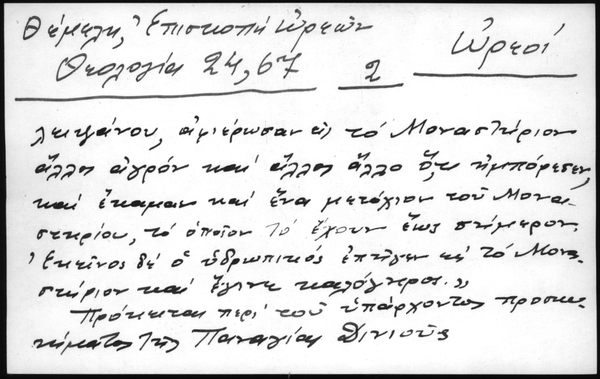 Θέμελη, Ἐπισκοπή Ὠρεῶν
Ὠρεοί
Θεολογία 24, 67
2
λειψάνου, ἀφιέρωσαν εἰς τό Μοναστήριον
ἄλλοι ἀγρόν καί ἄλλοι ἄλλο ὅ,τι ἠμπόρεσεν,
καί ἔκαμαν καί ἕνα μετόχιον τοῦ Μονα-
στηρίου, τό ὁποῖον τό ἔχουν ἕως σήμερον.
Ἐκεῖνος δέ ὁ ὑδρωπικός ἐπῆγεν εἰς τό Μονα-
στήριον καί ἔγινε καλόγηρος.»
Πρόκειται περί τοῦ ὑπάρχοντος προσκυ-
νήματος τῆς Παναγίας Δινιοῦς